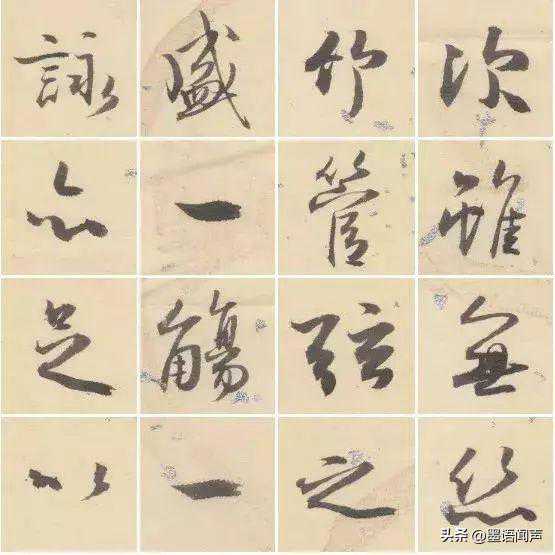 次雖無絲
竹管弦之
盛一觴一
詠亦足以
头条 @墨语闻声